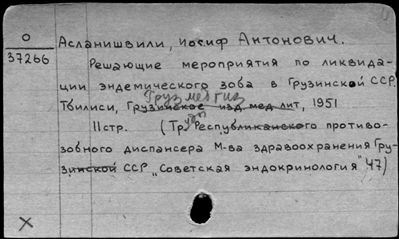 О
37266
Асланишвили, Иосиф Антонович.
Решающие мероприятия по ликвида-
ции эндемического зоба в Грузинской ССР.
Грузмедгиз
Тбилиси, Грузинское изд мед лит, 1951
11стр. (Тр. Республиканского противо-
зобного диспансера М-ва здравоохранения Гру-
зинской ССР „Советская эндокринология" 47)
X